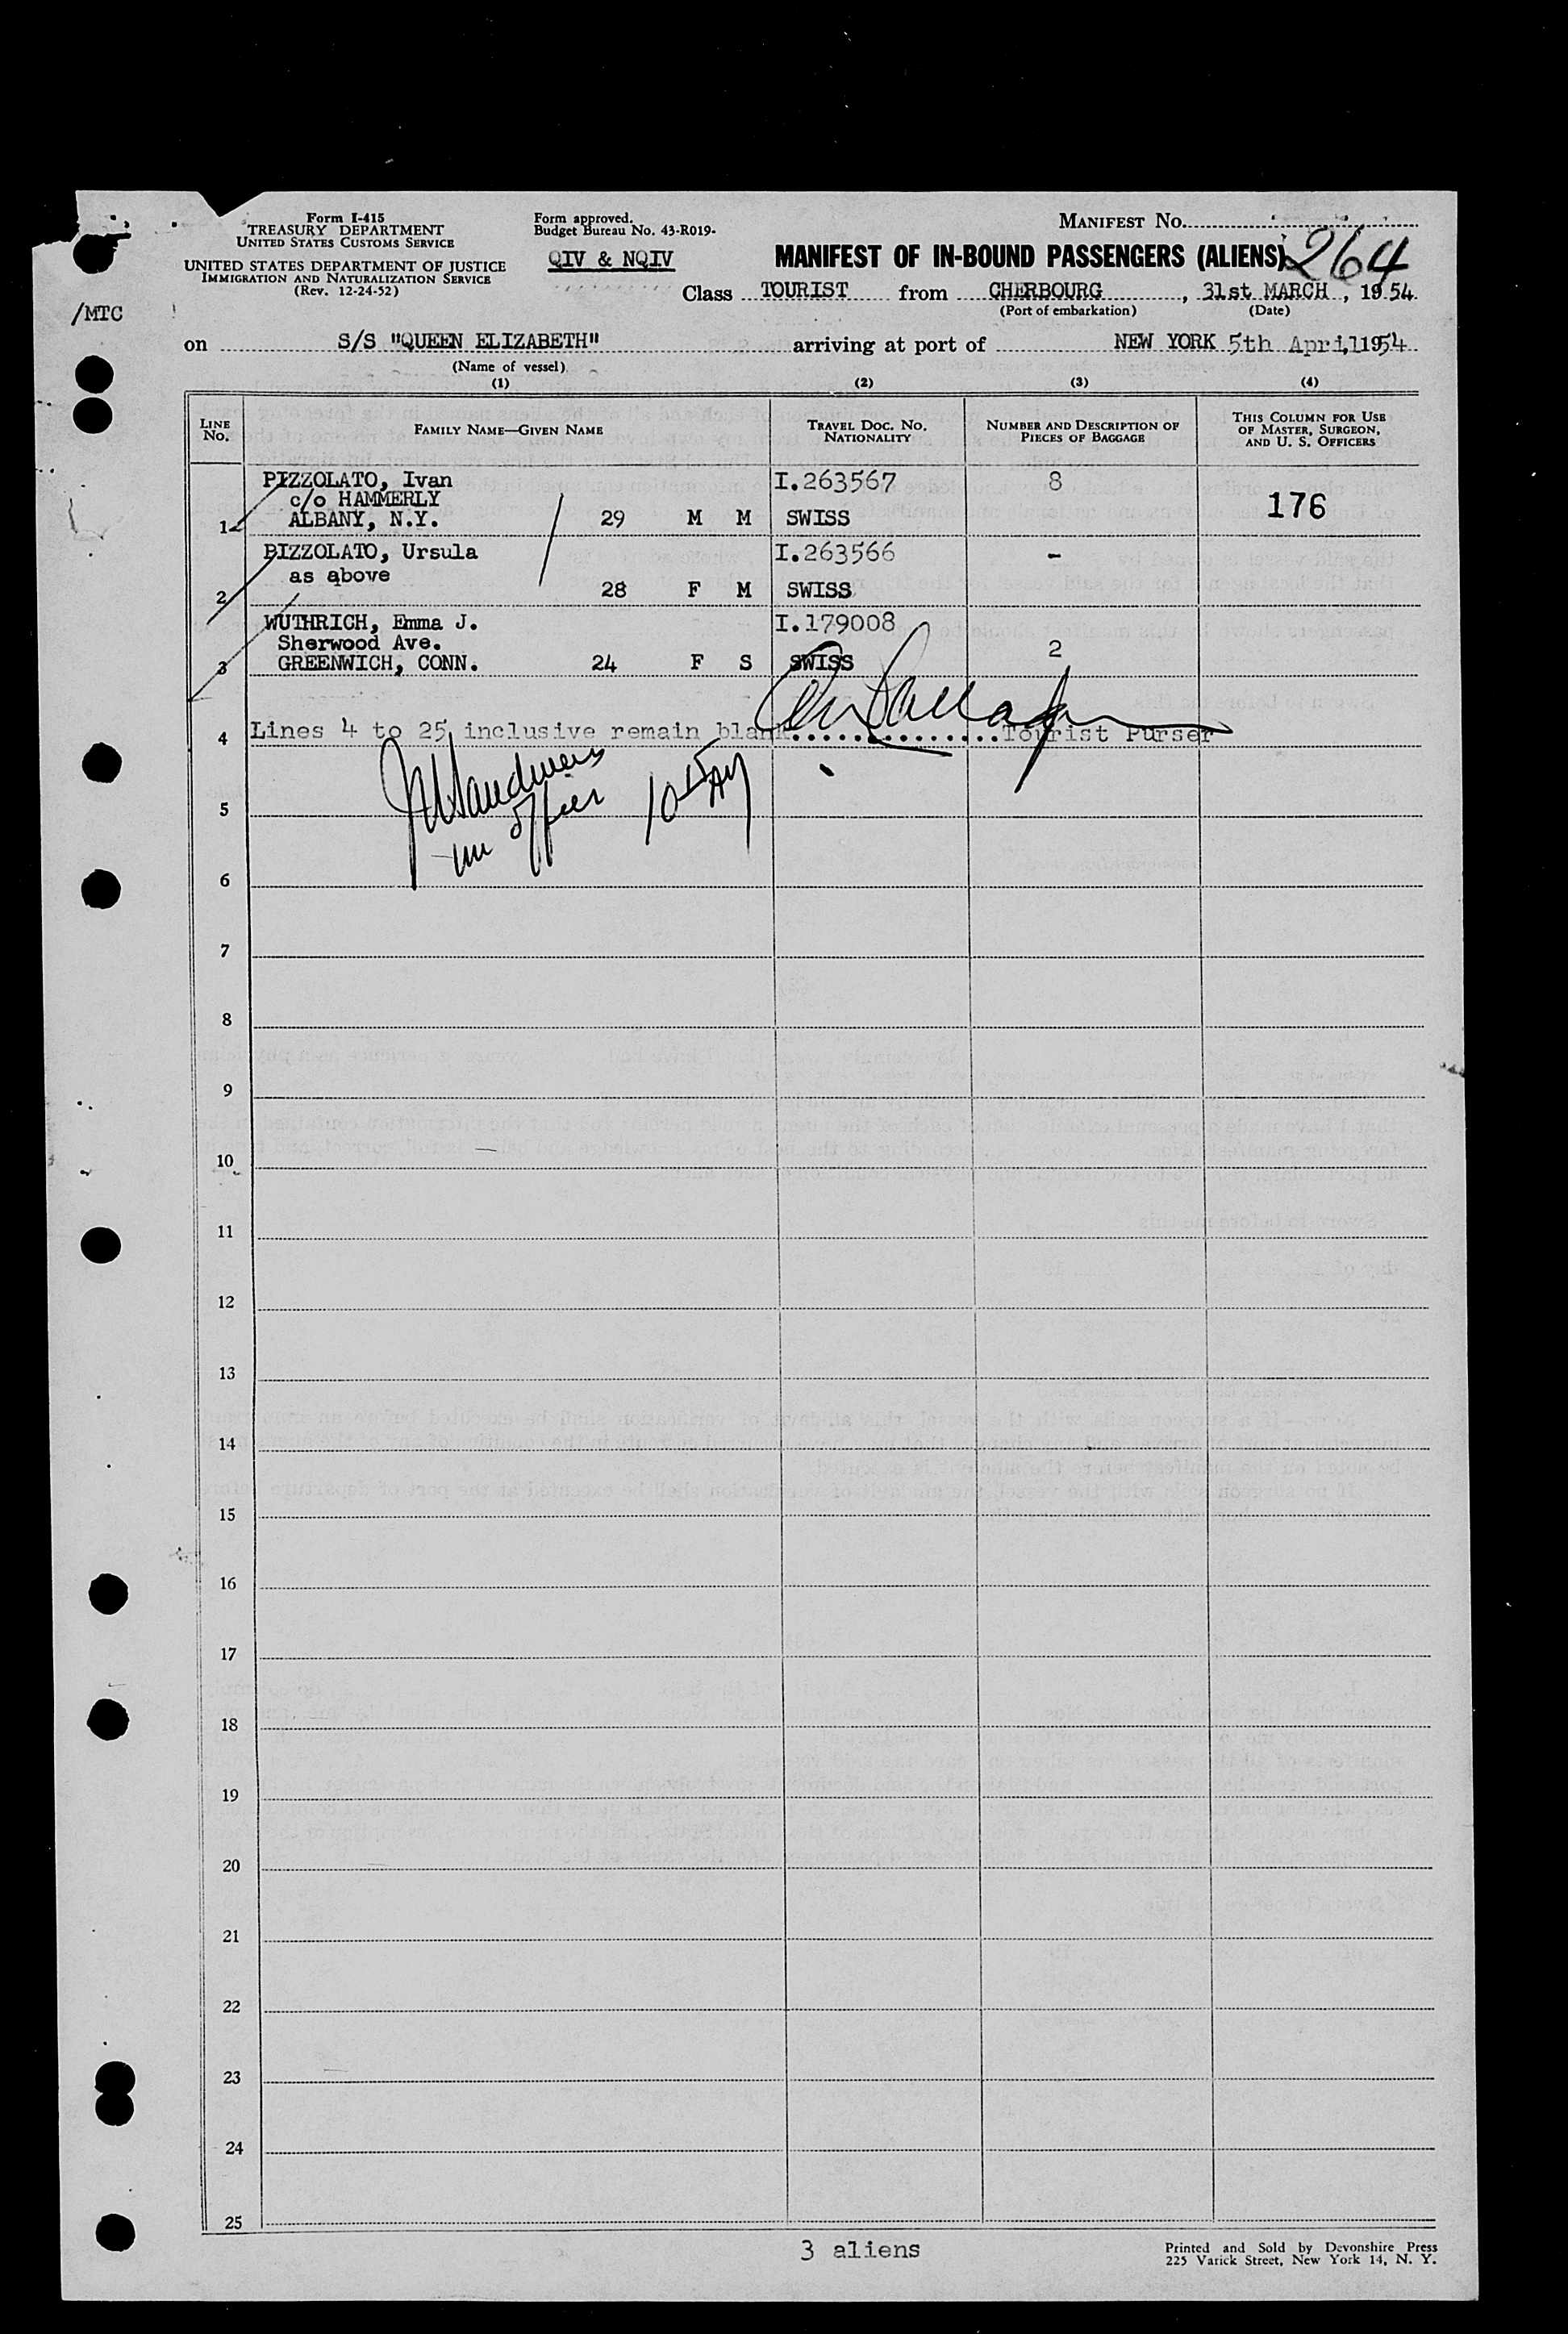 Form I-415
TREASURY DEPARTMENT
UNITED STATES CUSTOMS SERVICE
UNITED STATES DEPARTMENT OF JUSTICE
IMMIGRATION AND NATURALIZATION SERVICE
(Rev. 12-24-52)
/MTC
Form approved.
Budget Bureau No. 43-R019-
QIV & NQIV
MANIFEST No.
MANIFEST OF IN-BOUND PASSENGERS (ALIENS) 264
Class TOURIST from CHERBOURG, 31st MARCH, 1954.
(Port of embarkation) (Date)
on S/S "QUEEN ELIZABETH" arriving at port of NEW YORK 5th April, 1954
(Name of vessel)
(1) (2) (3) (4)
LINE No. FAMILY NAME—GIVEN NAME TRAVEL DOC. NO. NATIONALITY NUMBER AND DESCRIPTION OF PIECES OF BAGGAGE THIS COLUMN FOR USE OF MASTER, SURGEON, AND U. S. OFFICERS
PIZZOLATO, Ivan I.263567 8
c/o HAMMERLY 176
1 ALBANY, N.Y. 29 M M SWISS
PIZZOLATO, Ursula I.263566 -
as above
2 28 F M SWISS
WUTHRICH, Emma J. I.179008
Sherwood Ave. 2
3 GREENWICH, CONN. 24 F S SWISS
4 Lines 4 to 25 inclusive remain blank. Tourist Purser
officer
5
6
7
8
9
10
11
12
13
14
15
16
17
18
19
20
21
22
23
24
25
3 aliens
Printed and Sold by Devonshire Press
225 Varick Street, New York 14, N. Y.